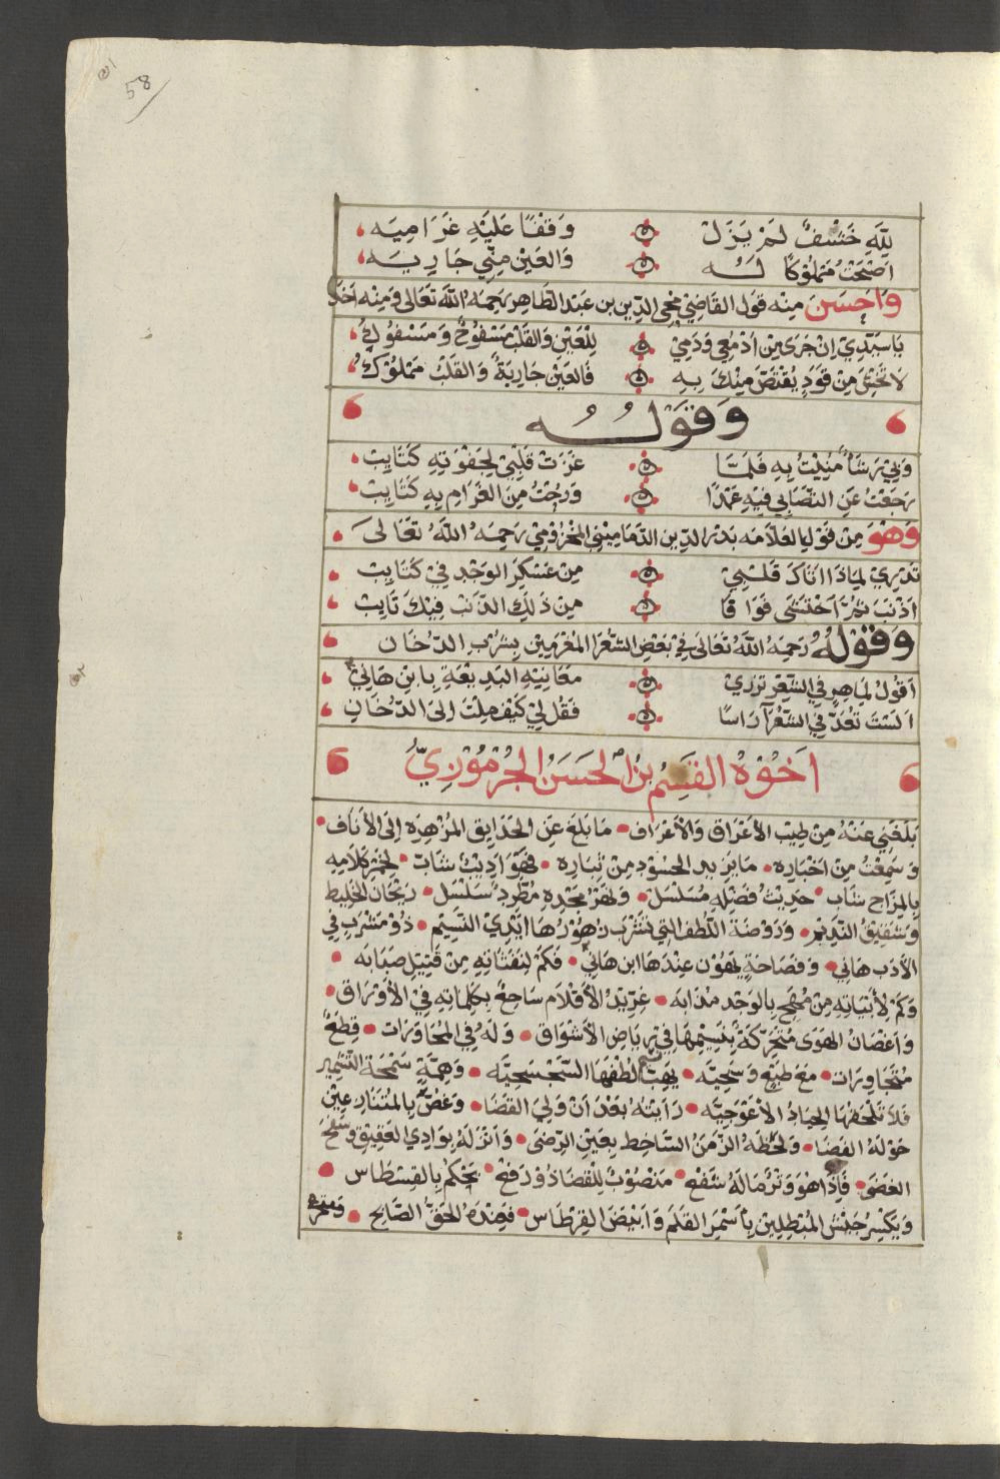 58
لِلَّهِ خَشْفٌ لَمْ يَزَلْ وَقْفًا عَلَيْهِ غَرَامِيَه
اَصْبَحْتُ مَمْلُوكًا لَهُ وَالعَيْنُ مِنّي جَارِيَه
وَاَحسَنَ مِنه قَول القَاضِيْ مُحْيى الدِّين بن عَبْد الظَاهِر رَحِمَهُ اللهُ تَعَالى وَمِنْه اَخَذَ
يَا سَيّدِيْ اِنْ جَرَى مِنْ اَدْمُعِي وَدَمِيْ لِلْعَيْنِ وَالقَلْبِ مَسْفُوحٌ وَمَسْفُوكُ
لَا تَخْشَ مِنْ قَوَدٍ يُقْتَصُّ مِنْكَ بِهِ فَالعَيْنُ جَارِيَةٌ وَالقَلْبُ مَمْلُوْكُ
وَقَوْلُهُ
وَبِيْ رَشَأٌ مُنِيْتُ بِهِ فَلَمَّا غَزَتْ قَلْبِيْ لِجَفْوَتِهِ كَتَايِبْ
رَجَعْتُ عَنِ التَّصَابِي فِيْهِ عَمْدًا وَرُحْتُ مِنَ الغَرَامِ بِهِ كَتَايِبْ
وَهْوَ مِنْ قَوْل العَلَّامَه بَدْر الدِّين الدَّمَامِيْنِي المَخْزُوْمِيْ رَحِمَهُ اللهُ تَعَالَى
تَدْرِيْ لِمَاذَا اتَاكَ قَلْبِيْ مِنْ عَسْكَرِ الوَجْدِ فِيْ كَتَايِبْ
اَذْنَبَ ثُمَّ اخْتَشَى فَوَافَا مِنْ ذَلِكَ الذَّنْبِ فِيْكَ تَايِبْ
وَقَوْلُهُ رَحِمَهُ اللهُ تَعَالَى فِيْ بَعْضِ الشُّعَرَا المُغْرَمِيْنَ بِشُرْبِ الدُّخَان
اَقُوْلُ لِمَاهِرٍ فِي الشِّعْرِ تُزْرِيْ مَعَانِيْهِ البَدِيْعَةِ بِابْنِ هَانِيْ
اَلَسْتَ تُعَدُّ فِي الشُّعَرَآ رَاسًا فَقُلْ لِيْ كَيْفَ مِلْتَ اِلَى الدُّخَانِ
اَخُوْهُ القٰسِمُ بنُ الحَسَنِ الجُرْمُوْزِيّ
بَلَغَنِي عَنْهُ مِنْ طِيْبِ الاَعْرَاقِ وَالاَعْرَاف مَا بَلَغَ عَنِ الحَدَايِقِ المُزْهِرَه اِلَى الاَنَاف
وَسَمِعْتُ مِنْ اَخْبَارِه مَا يَزِيد الحَسُوْد مِنْ تَبَارِه فَهُوَ اَدِيْبٌ شَابّ لِخَمْرِ كَلَامِهِ
بِالمِزَاحِ شَاب حَدِيْثُ فَضْلِهِ مُسَلْسَل وَنَهْرُ مَجْدِهِ مُطَّرِدٌ سَلْسَل رَيْحَان الخَلِيْط
وَشَقِيْقُ النَّدِيْم وَرَوْضَة اللُّطْف التِي نَثَرَتْ زُهُوْرَهَا اَيْدِيْ النَّسِيْم ذُوْ مَشْرَبٍ فِي
الاَدَب هَانِي وَفَصَاحَةٍ يَهُوْن عِنْدَهَا ابن هَانِي فَكَمْ لِنَفَثَاتِهِ مِنْ قَتِيْلِ صَبَابَه
وَكَمْ لِاَبْيَاتِه مِنْ مُهَجٍ بِالوَجْد مُذَابَه غِرِّيْدُ الاَقْلَام سَاجِعٌ بِكَلِمَاتِهِ فِيْ الاَوْرَاق
وَاَغْصَانُ الهَوَى مُتَحَرِّكَةٌ بِنَسِيْمِهَا فِيْ رِيَاضِ الاَشْوَاق وَلَهُ فِي المُحَاوَرَات قِطَعٌ
مُتَجَاوِرَات مَعَ طَبْعٍ وَسَجِيّه يَهُبّ لُطْفُهَا السَّجْسَجِيَّه وَهِمَّةٍ سَمْحَة التَّشْمِير
فَلَا تَلْحَقُهَا الجِيَادُ الاَعْوَجِيَّه رَاَيْتُهُ بَعْدَ اَنْ وَلِيَ القَضَا وَغَصَّ بِالمُتَنَازِعِيْنَ
حَوْلَهُ الفَضَا وَلَحَظَهُ الزَّمَنُ السَّاخِط بِعَيْنِ الرِّضَى وَاَنْزَلَهُ بِوَادِي العَقِيْقِ وَسَفْحِ
الغَضَى فَاِذَا هُوَ وَتْرٌ مَا لَهُ شَفْع مَنْصُوْبٌ لِلْقَضَا ذُوْ رَفْع يَحْكُمُ بِالقِسْطَاس
وَيَكْسِرُ جَيْشَ المُبْطِلِيْنَ بِاَسْمَرِ القَلَم وَاَبْيَضِ القِرْطَاس فَعِنْدَهُ الحَقُّ الصَّايح